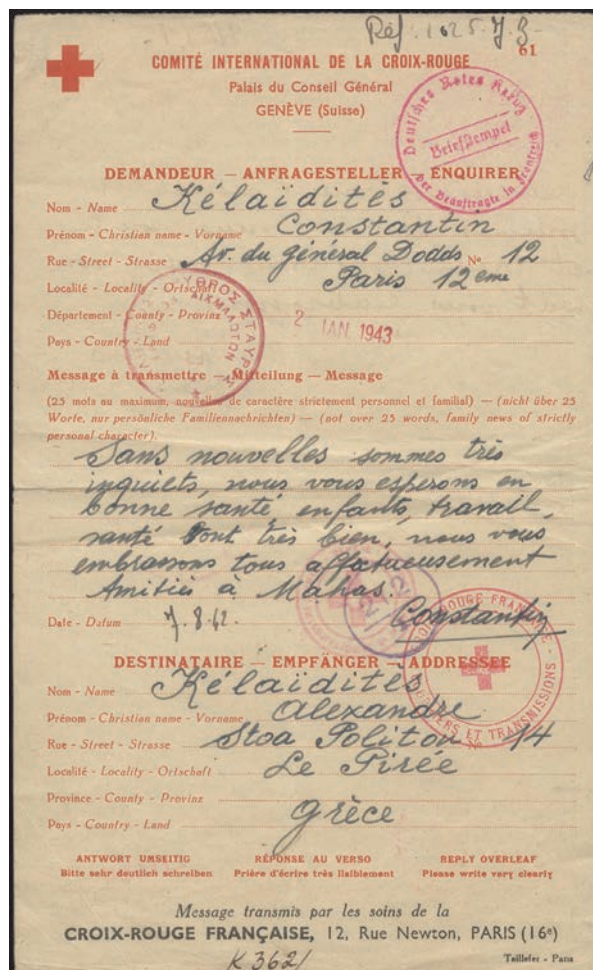 Réf. 1625.J.3-
61
COMITÉ INTERNATIONAL DE LA CROIX-ROUGE
Palais du Conseil Général
GENÈVE (Suisse)
Deutsches Rotes Kreuz
Briefstempel
Der Beauftragte in Frankreich
DEMANDEUR — ANFRAGESTELLER — ENQUIRER
Nom - Name Kélaïditès
Prénom - Christian name - Vorname Constantin
Rue - Street - Strasse Av. du général Dodds No 12
Localité - Locality - Ortschaft Paris 12eme
Département - County - Provinz
ΣΤΑΥΡ
ΑΙΧΜΑΛΩΤΩΝ
2 IAN. 1943
Pays - Country - Land
Message à transmettre — Mitteilung — Message
(25 mots au maximum, nouvelles de caractère strictement personnel et familial) — (nicht über 25
Worte, nur persönliche Familiennachrichten) — (not over 25 words, family news of strictly
personal character).
Sans nouvelles sommes très
inquiets, nous vous esperons en
bonne santé, enfants, travail,
santé tout très bien, nous vous
embrassons tous affectueusement
Amitiés à Mahas.
Constantin
Date - Datum 7.8.42.
CROIX-ROUGE FRANÇAISE
ET TRANSMISSIONS
DESTINATAIRE — EMPFÄNGER — ADDRESSEE
Nom - Name Kélaïditès
Prénom - Christian name - Vorname Alexandre
Rue - Street - Strasse Stoa Politou No 14
Localité - Locality - Ortschaft Le Pirée
Province - County - Provinz
Pays - Country - Land Grèce
ANTWORT UMSEITIG RÉPONSE AU VERSO REPLY OVERLEAF
Bitte sehr deutlich schreiben Prière d'écrire très lisiblement Please write very clearly
Message transmis par les soins de la
CROIX-ROUGE FRANÇAISE, 12, Rue Newton, PARIS (16e)
K 362/
Taillefer - Paris